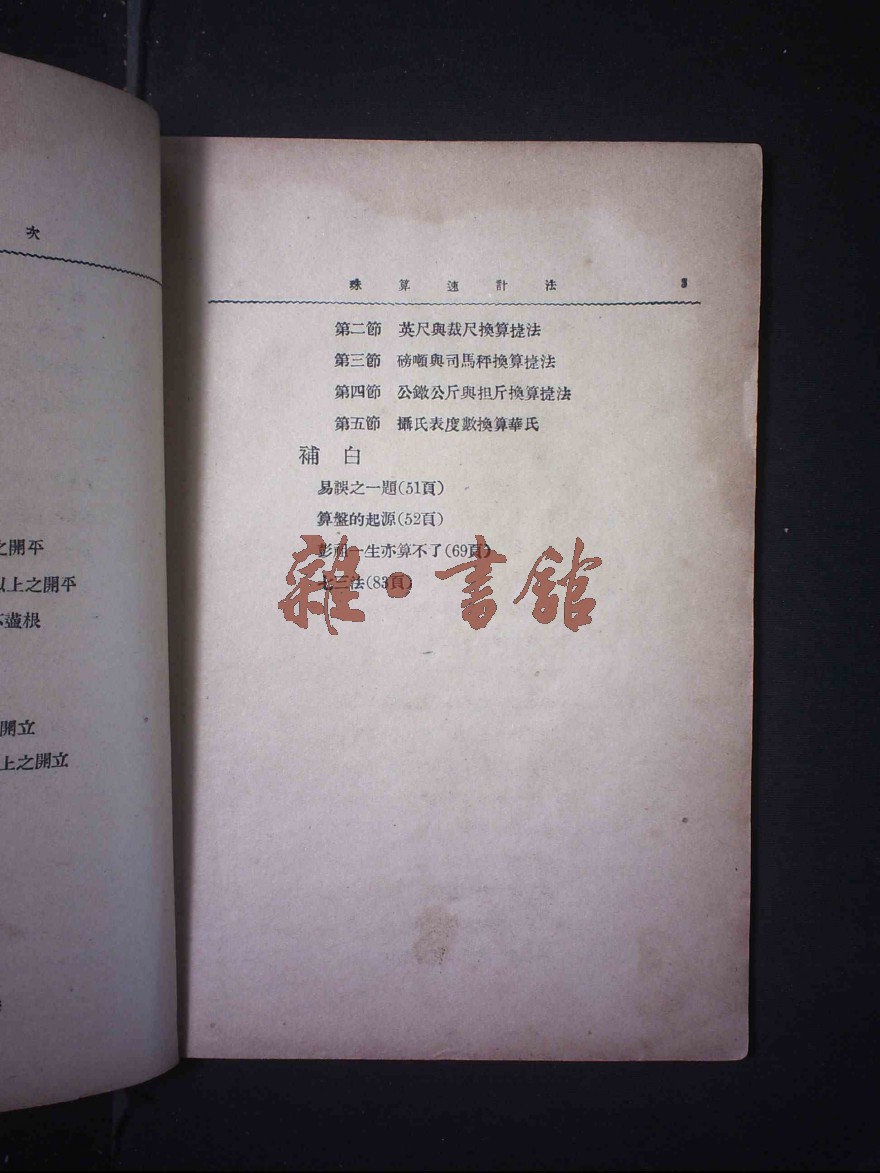 次
之開平
以上之開平
不盡根
開立
上之開立
珠算速計法 3
第二節 英尺與裁尺換算㨗法
第三節 磅噸與司馬秤換算㨗法
第四節 公鐓公斤與担斤換算㨗法
第五節 攝氏表度數換算華氏
補白
易誤之一題(51頁)
算盤的起源(52頁)
彭祖一生亦算不了(69頁)
七三法(83頁)
雜·書館